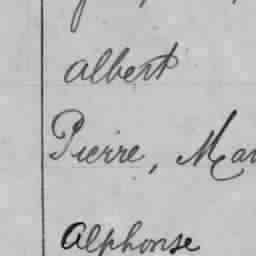 Albert
Pierre, Mar
Alphonse